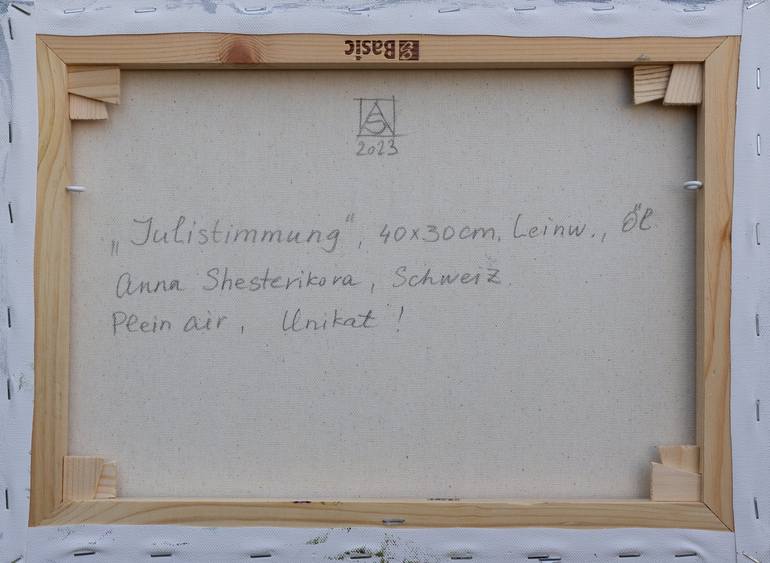 Basic
AS
2023
„Julistimmung", 40x30cm, Leinw., Öl
Anna Shesterikova, Schweiz.
Plein air, Unikat!